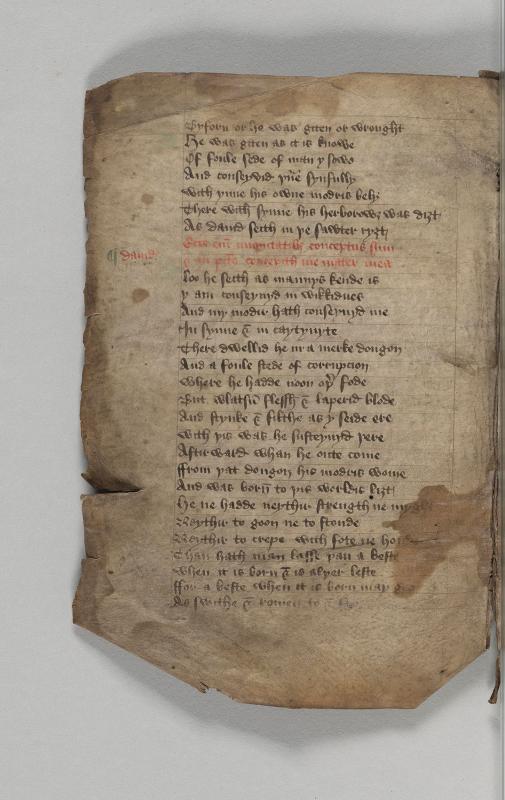 Byforn or he was geten or wrought
He was geten as it is knowe
Of foule sede of man y sowe
And conseyvid þne synfully
With ynne his owne modris bely
There with synne his herborowȝ was diȝt
As david seith in þe sawter ryȝt
Ecce eni iniquitatibȝ conceptus sum
¶ david
& in pctis concepit me mater mea
Loo he seith as mannys kende is
y am conseyuyd in wikkidnes
And my modir hath conseyuyd me
In synne & in caytyuyte
There dwellid he in a merke dongon
And a foule stede of corrupcion
Where he hadde noon oþ fode
But wlatsu flessh & laperid blode
And stynke & filthe as y seide ere
With þis was he susteynyd þere
Aftirward whan he oute come
ffrom þat dongon his modris wome
And was born to þis worldis liȝt
He ne hadde neythir strength ne
Neythir to goon ne to stonde
Neythir to crepe with fote ne
Than hath man lasse þan a beste
When it is born & is alþer leste
ffor a beste when it is born may
As swithe & romen to &